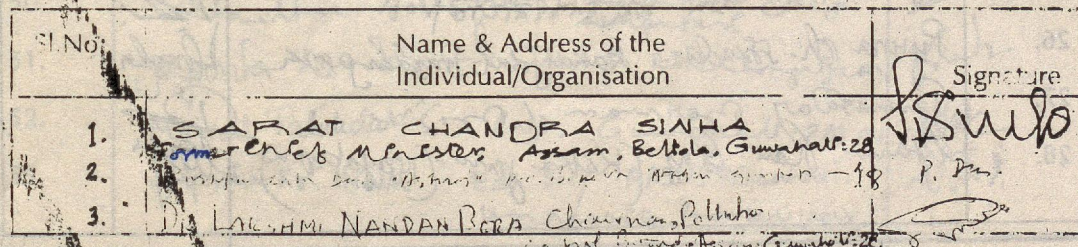 Sl.No. Name & Address of the Individual/Organisation Signature
1. SARAT CHANDRA SINHA
Former Chief Minister, Assam, Beltola, Guwahati: 28
2. - 18 P. Das.
3. Dr. LAKSHMI NANDAN BORA Chairman, Pollution
Control Board, Assam, Guwahati: 28